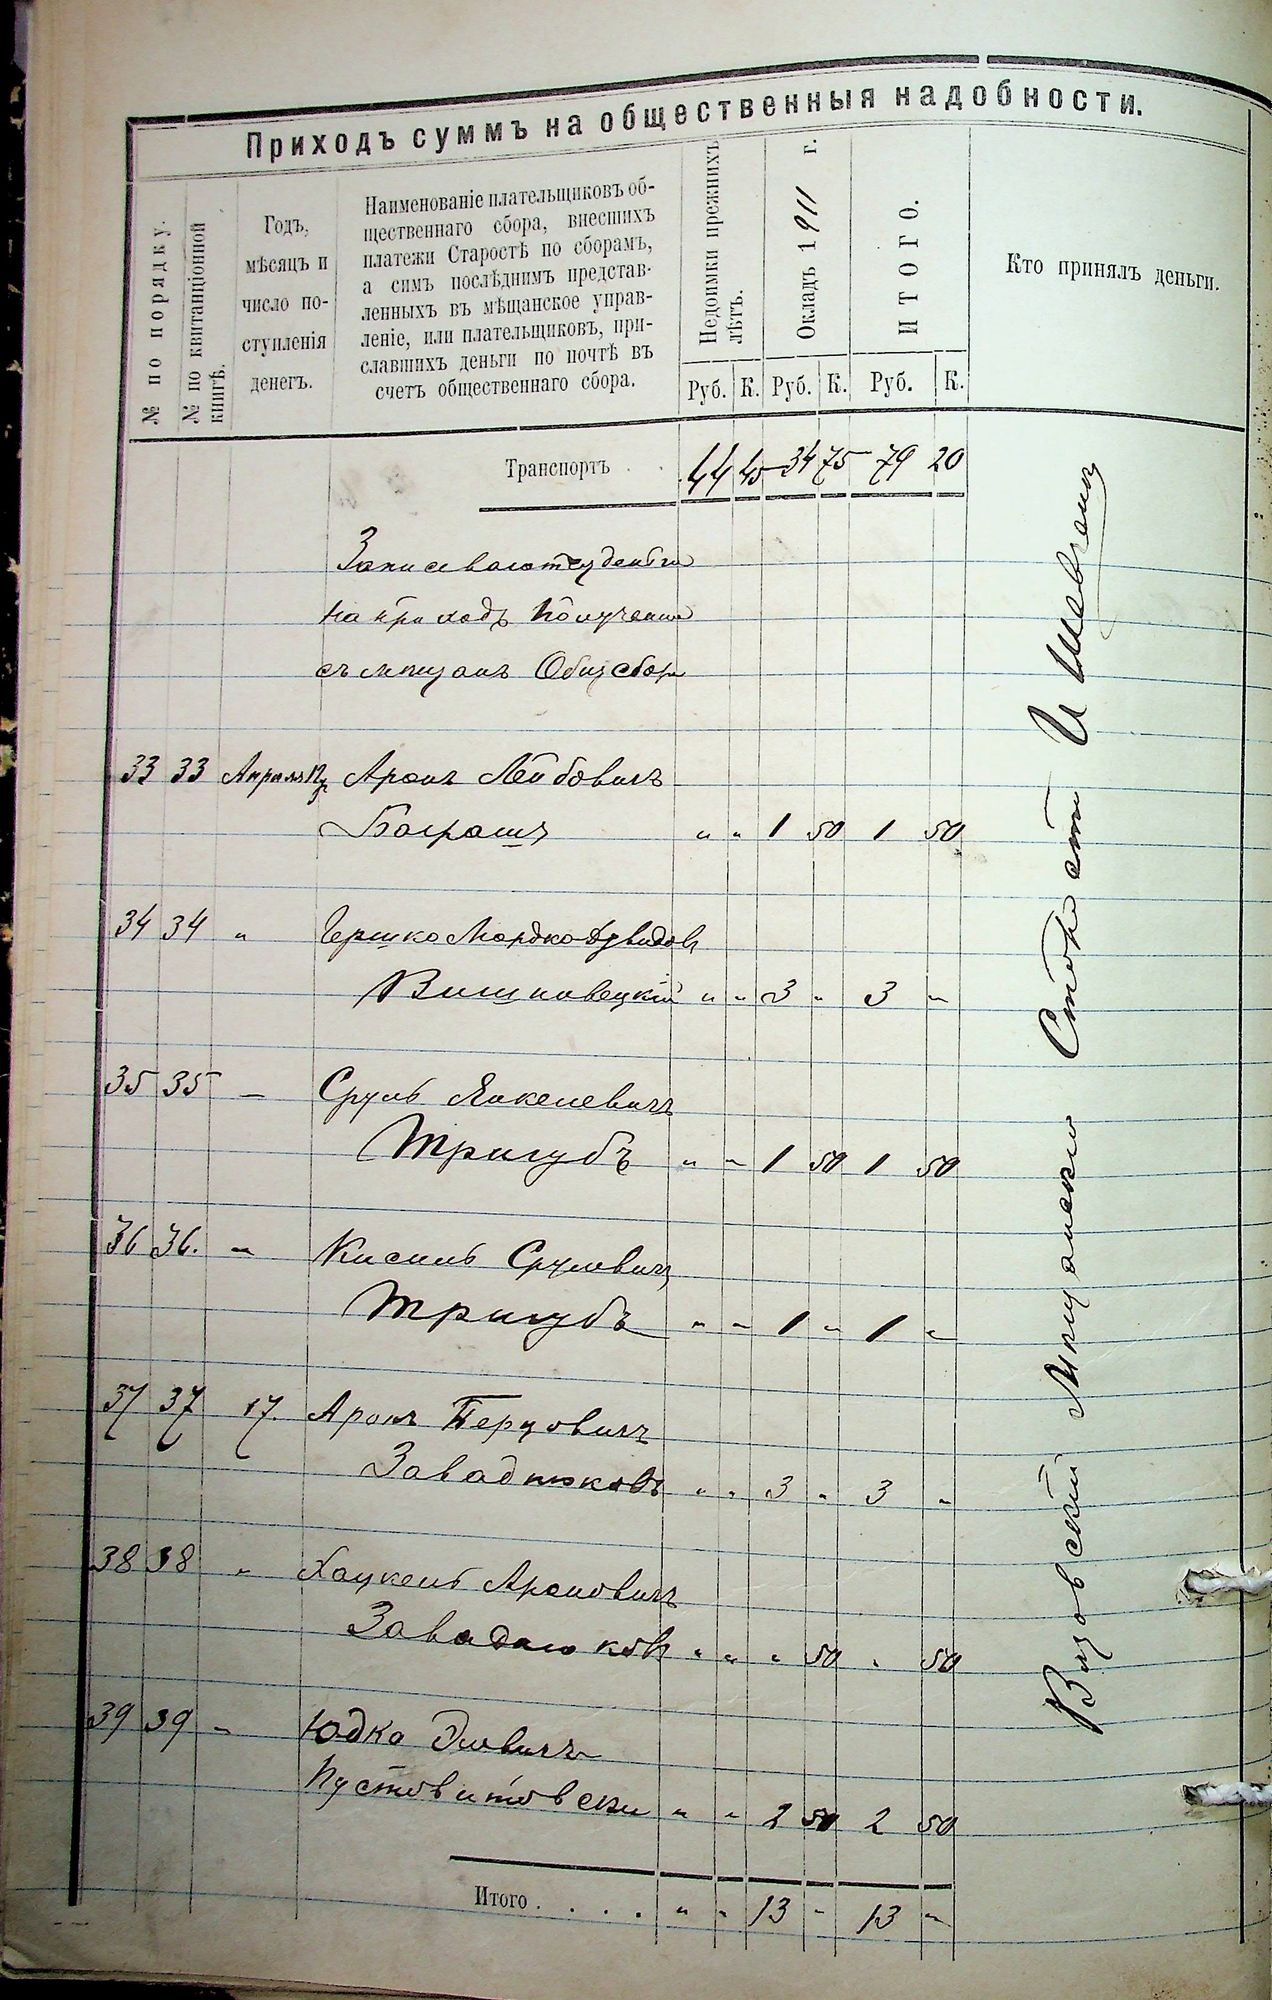 Приходъ суммъ на общественныя надобности.
№ по порядку.
№ по квитанціонной
книгѣ.
Годъ,
мѣсяцъ и
число по-
ступленія
денегъ.
Наименованіе плательщиковъ об-
щественнаго сбора, внесшихъ
платежи Старостѣ по сборамъ,
а симъ послѣднимъ представ-
ленныхъ въ мѣщанское управ-
леніе, или плательщиковъ, при-
славшихъ деньги по почтѣ въ
счетъ общественнаго сбора.
Недоимки прежнихъ
лѣтъ.
Окладъ 1911 г.
ИТОГО.
Кто принялъ деньги.
Руб. К. Руб. К. Руб. К.
Транспортъ . . 44 45 34 75 79 20
Записываются деньги
на приходъ
съ мѣщанъ Общ сбора
33 33 Апрѣля Аронъ Лейбовичъ
" " 1 50 1 50
34 34 " Гершко Мордко Дувидов
Вишновецкій " " 3 " 3 "
35 35 — Сруль Янкелевичъ
Тригубъ " " 1 50 1 50
36 36. — Кисиль Срулевичъ
Тригубъ " " 1 " 1 "
37 37 17. Аронъ Берковичъ
" " 3 " 3 "
38 38 " Хацкель Ароновичъ
" " " 50 " 50
39 39 — Юдко
Пустовитовски " " 2 50 2 50
Итого . . . . " " 13 " 13 "
Мѣщанскій Староста И Шевченк